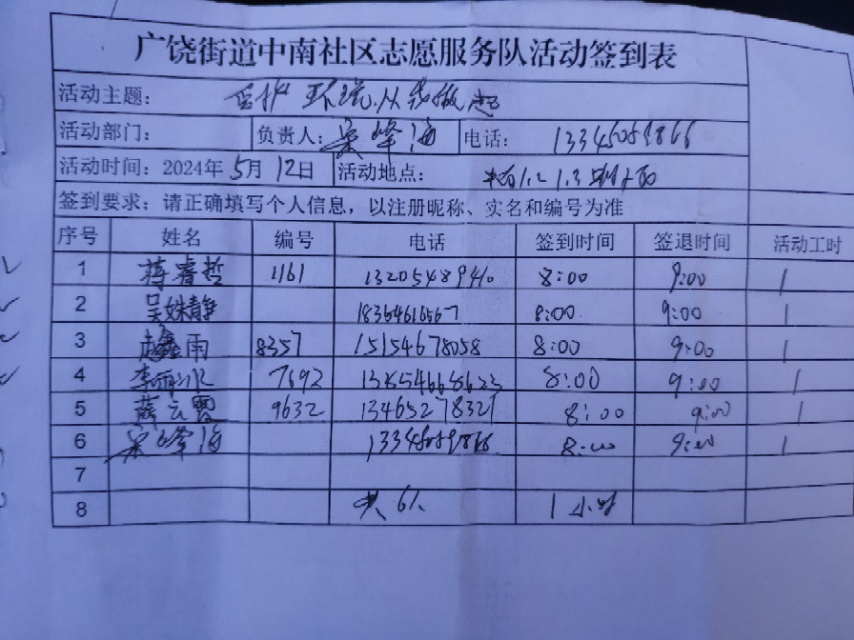 广饶街道中南社区志愿服务队活动签到表
活动主题： 保护环境，从我做起
活动部门： 负责人： 峰海 电话： 13345059866
活动时间：2024年5月12日 活动地点： 1.2 1.3
签到要求：请正确填写个人信息，以注册昵称、实名和编号为准
序号 姓名 编号 电话 签到时间 签退时间 活动工时
1 蒋睿哲 1161 13205489410 8:00 9:00 1
2 吴姝静 18364616567 8:00 9:00 1
3 赵鑫雨 8357 15154678058 8:00 9:00 1
4 李雨冰 7692 8:00 9:00 1
5 薛云霞 9632 13465278321 8:00 9:00 1
6 峰海 13345059866 8:00 9:00 1
7
8 共6人 1小时